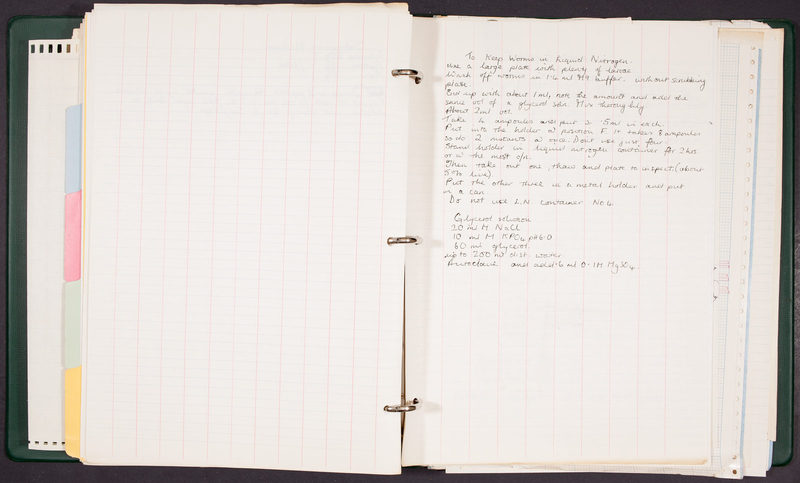 To Keep Worms in Liquid Nitrogen.
Use a large plate with plenty of larvae
Wash off worms in 1.4 ml M9 buffer. without scrubbing
plate.
End up with about 1ml, note the amount and add the
same vol of a glycerol soln. Mix thoroughly
About 2ml vol.
Take 4 ampoules and put .5ml in each.
Put into the holder in position F. It takes 8 ampoules
so do 2 mutants at once. Dont use just four.
Stand holder in liquid nitrogen container for 2hrs
or in the most o/n.
Then take out one, thaw and plate to inspect (about
50% live).
Put the other three in a metal holder and put
in a can
Do not use L.N. container No 4.
Glycerol solution
20 ml M NaCl
10 ml M KPO4 pH6.0
60 ml glycerol.
up to 200 ml dist. water
Autoclave and add .6 ml 0.1M MgSO4